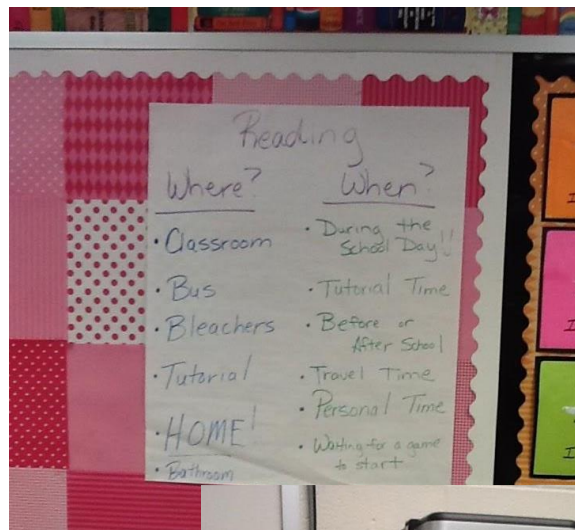 Reading
Where?
• Classroom
• Bus
• Bleachers
• Tutorial
• HOME!
• Bathroom
When?
• During the
School Day!!
• Tutorial Time
• Before or
After School
• Travel Time
• Personal Time
• Waiting for a game
to start